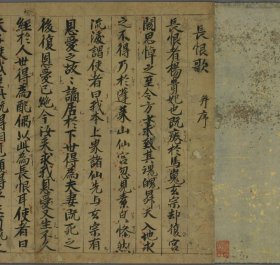 長恨歌 并序
長恨者楊貴妃也既癈於馬嵬玄宗却復宮
闕思悼之至令方士求致其魂魄昇天入地求
之不得乃於蓬莱山仙宮忽見素皃條然
流淚謂使者曰我本上界諸仙先与玄宗有
恩愛之故謫居於下世得為夫妻既死之
後恩愛已絶今汝来求我恩愛又生不久
却於人世得為配偶以此為長恨耳使者曰